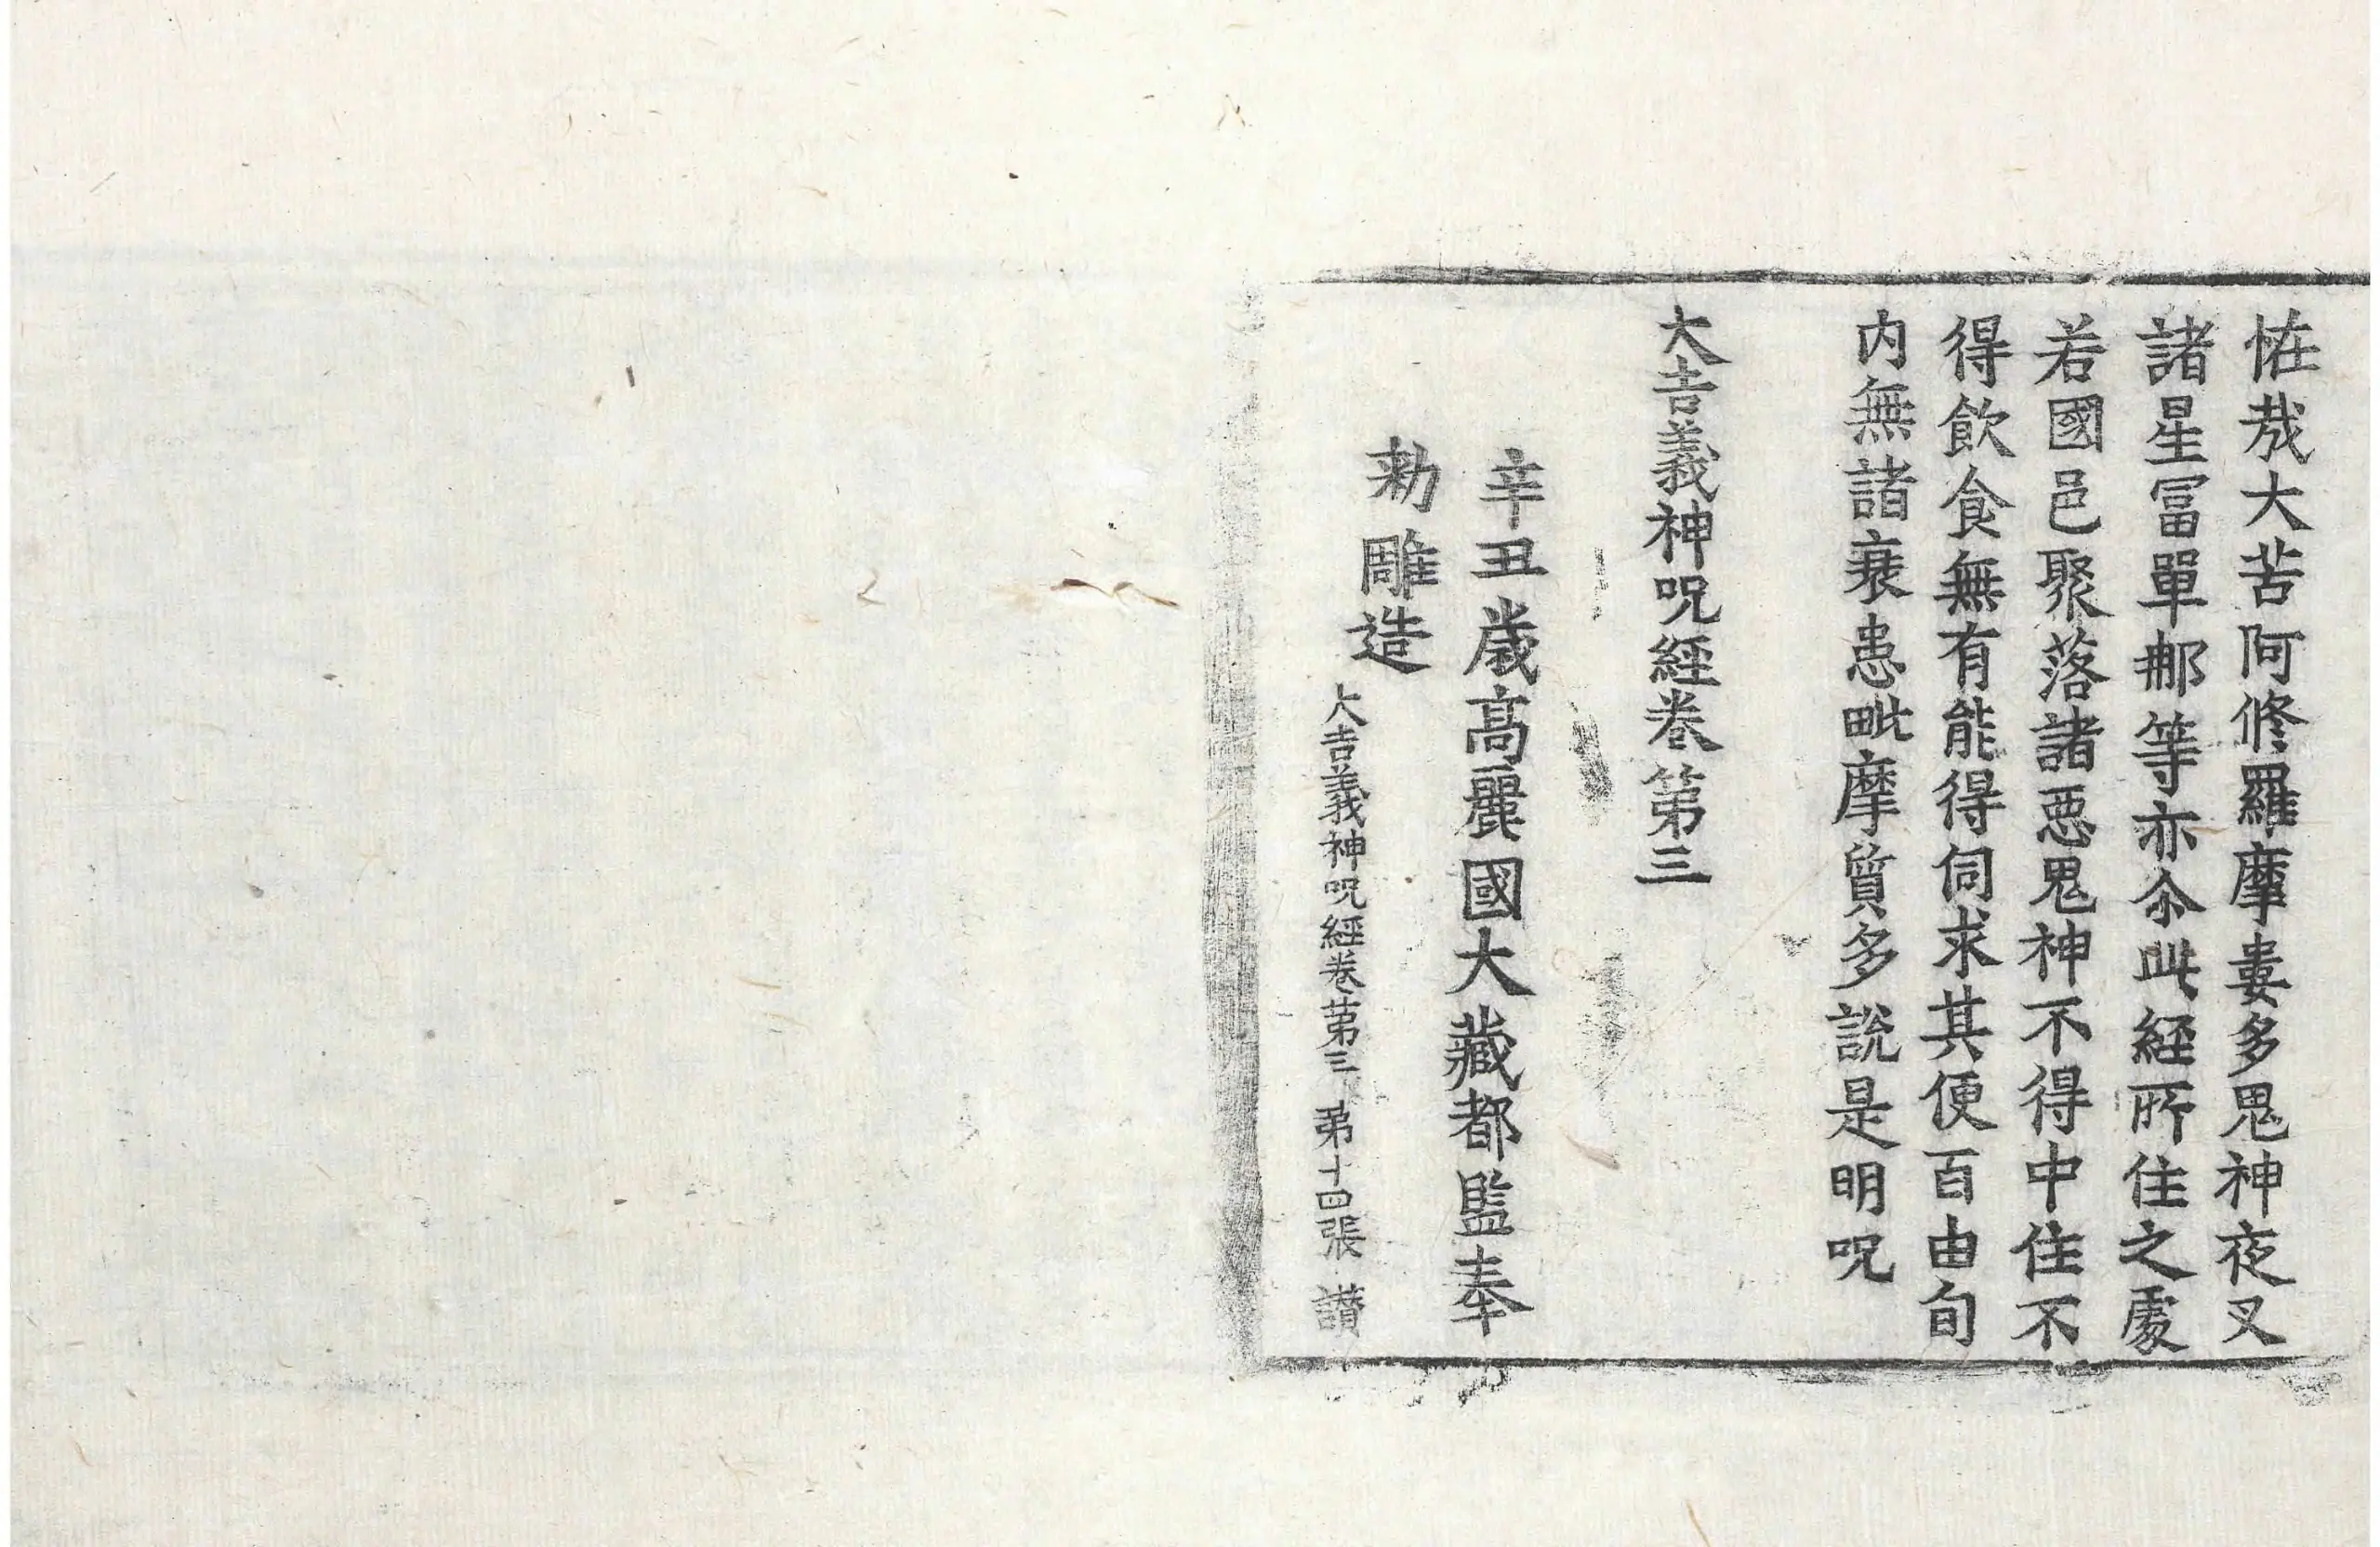 恠㢤大苦阿修羅摩婁多鬼神夜叉
諸星冨單那等亦尒此經所住之處
若國邑聚落諸惡鬼神不得中住不
得飮食無有能得伺求其便百由旬
内無諸衰患毗摩質多說是明呪
大吉義神呪經卷第三
辛丑歲高麗國大藏都監奉
勑雕造
大吉義神呪經卷第三 第十四張 讃